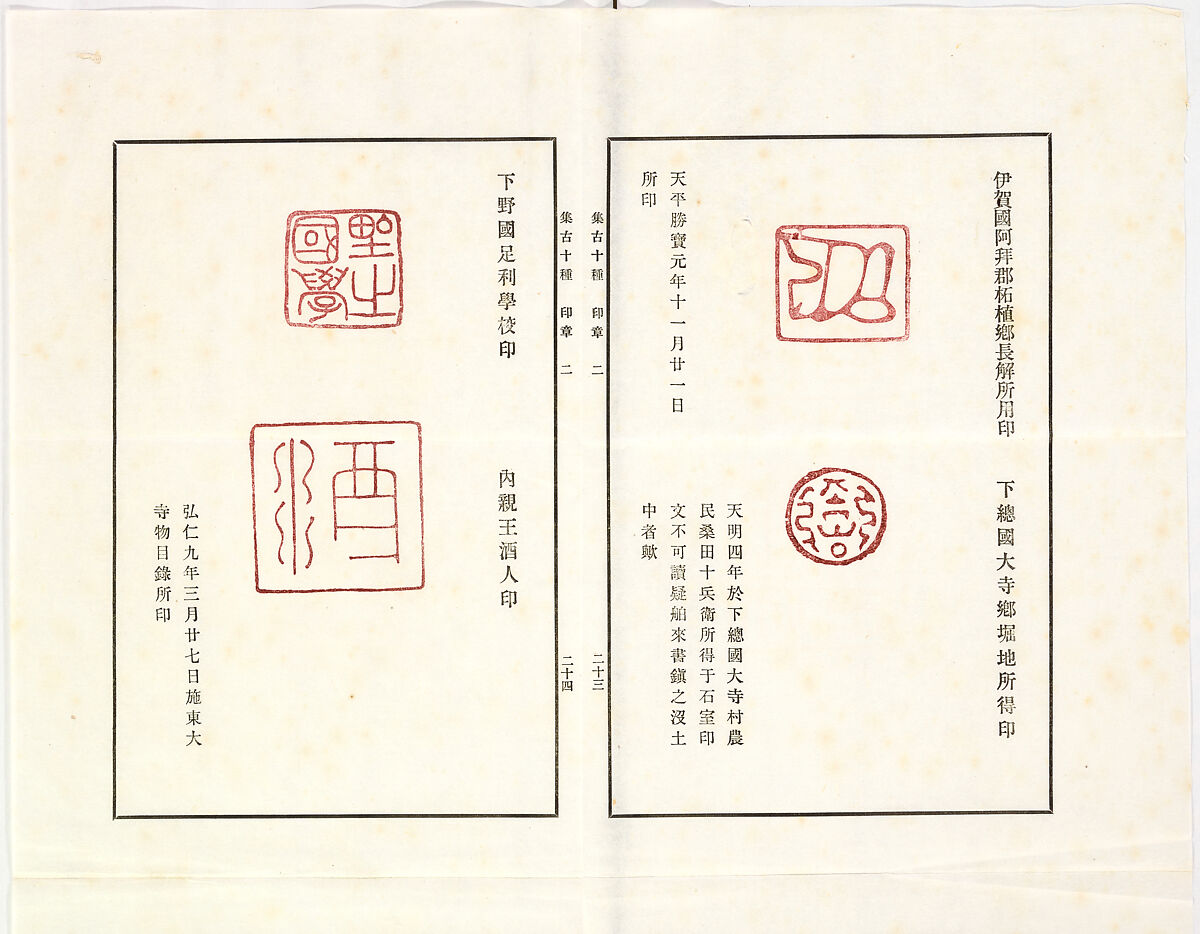 伊賀國阿拜郡柘植鄕長解所用印
天平勝寶元年十一月廿一日
所印
下總國大寺鄕堀地所得印
天明四年於下總國大寺村農
民桑田十兵衞所得于石室印
文不可讀疑舶來書鎭之沒土
中者歟
集古十種 印章 二 二十三
集古十種 印章 二 二十四
下野國足利學校印
野之
國學
內親王酒人印
酒
弘仁九年三月廿七日施東大
寺物目錄所印